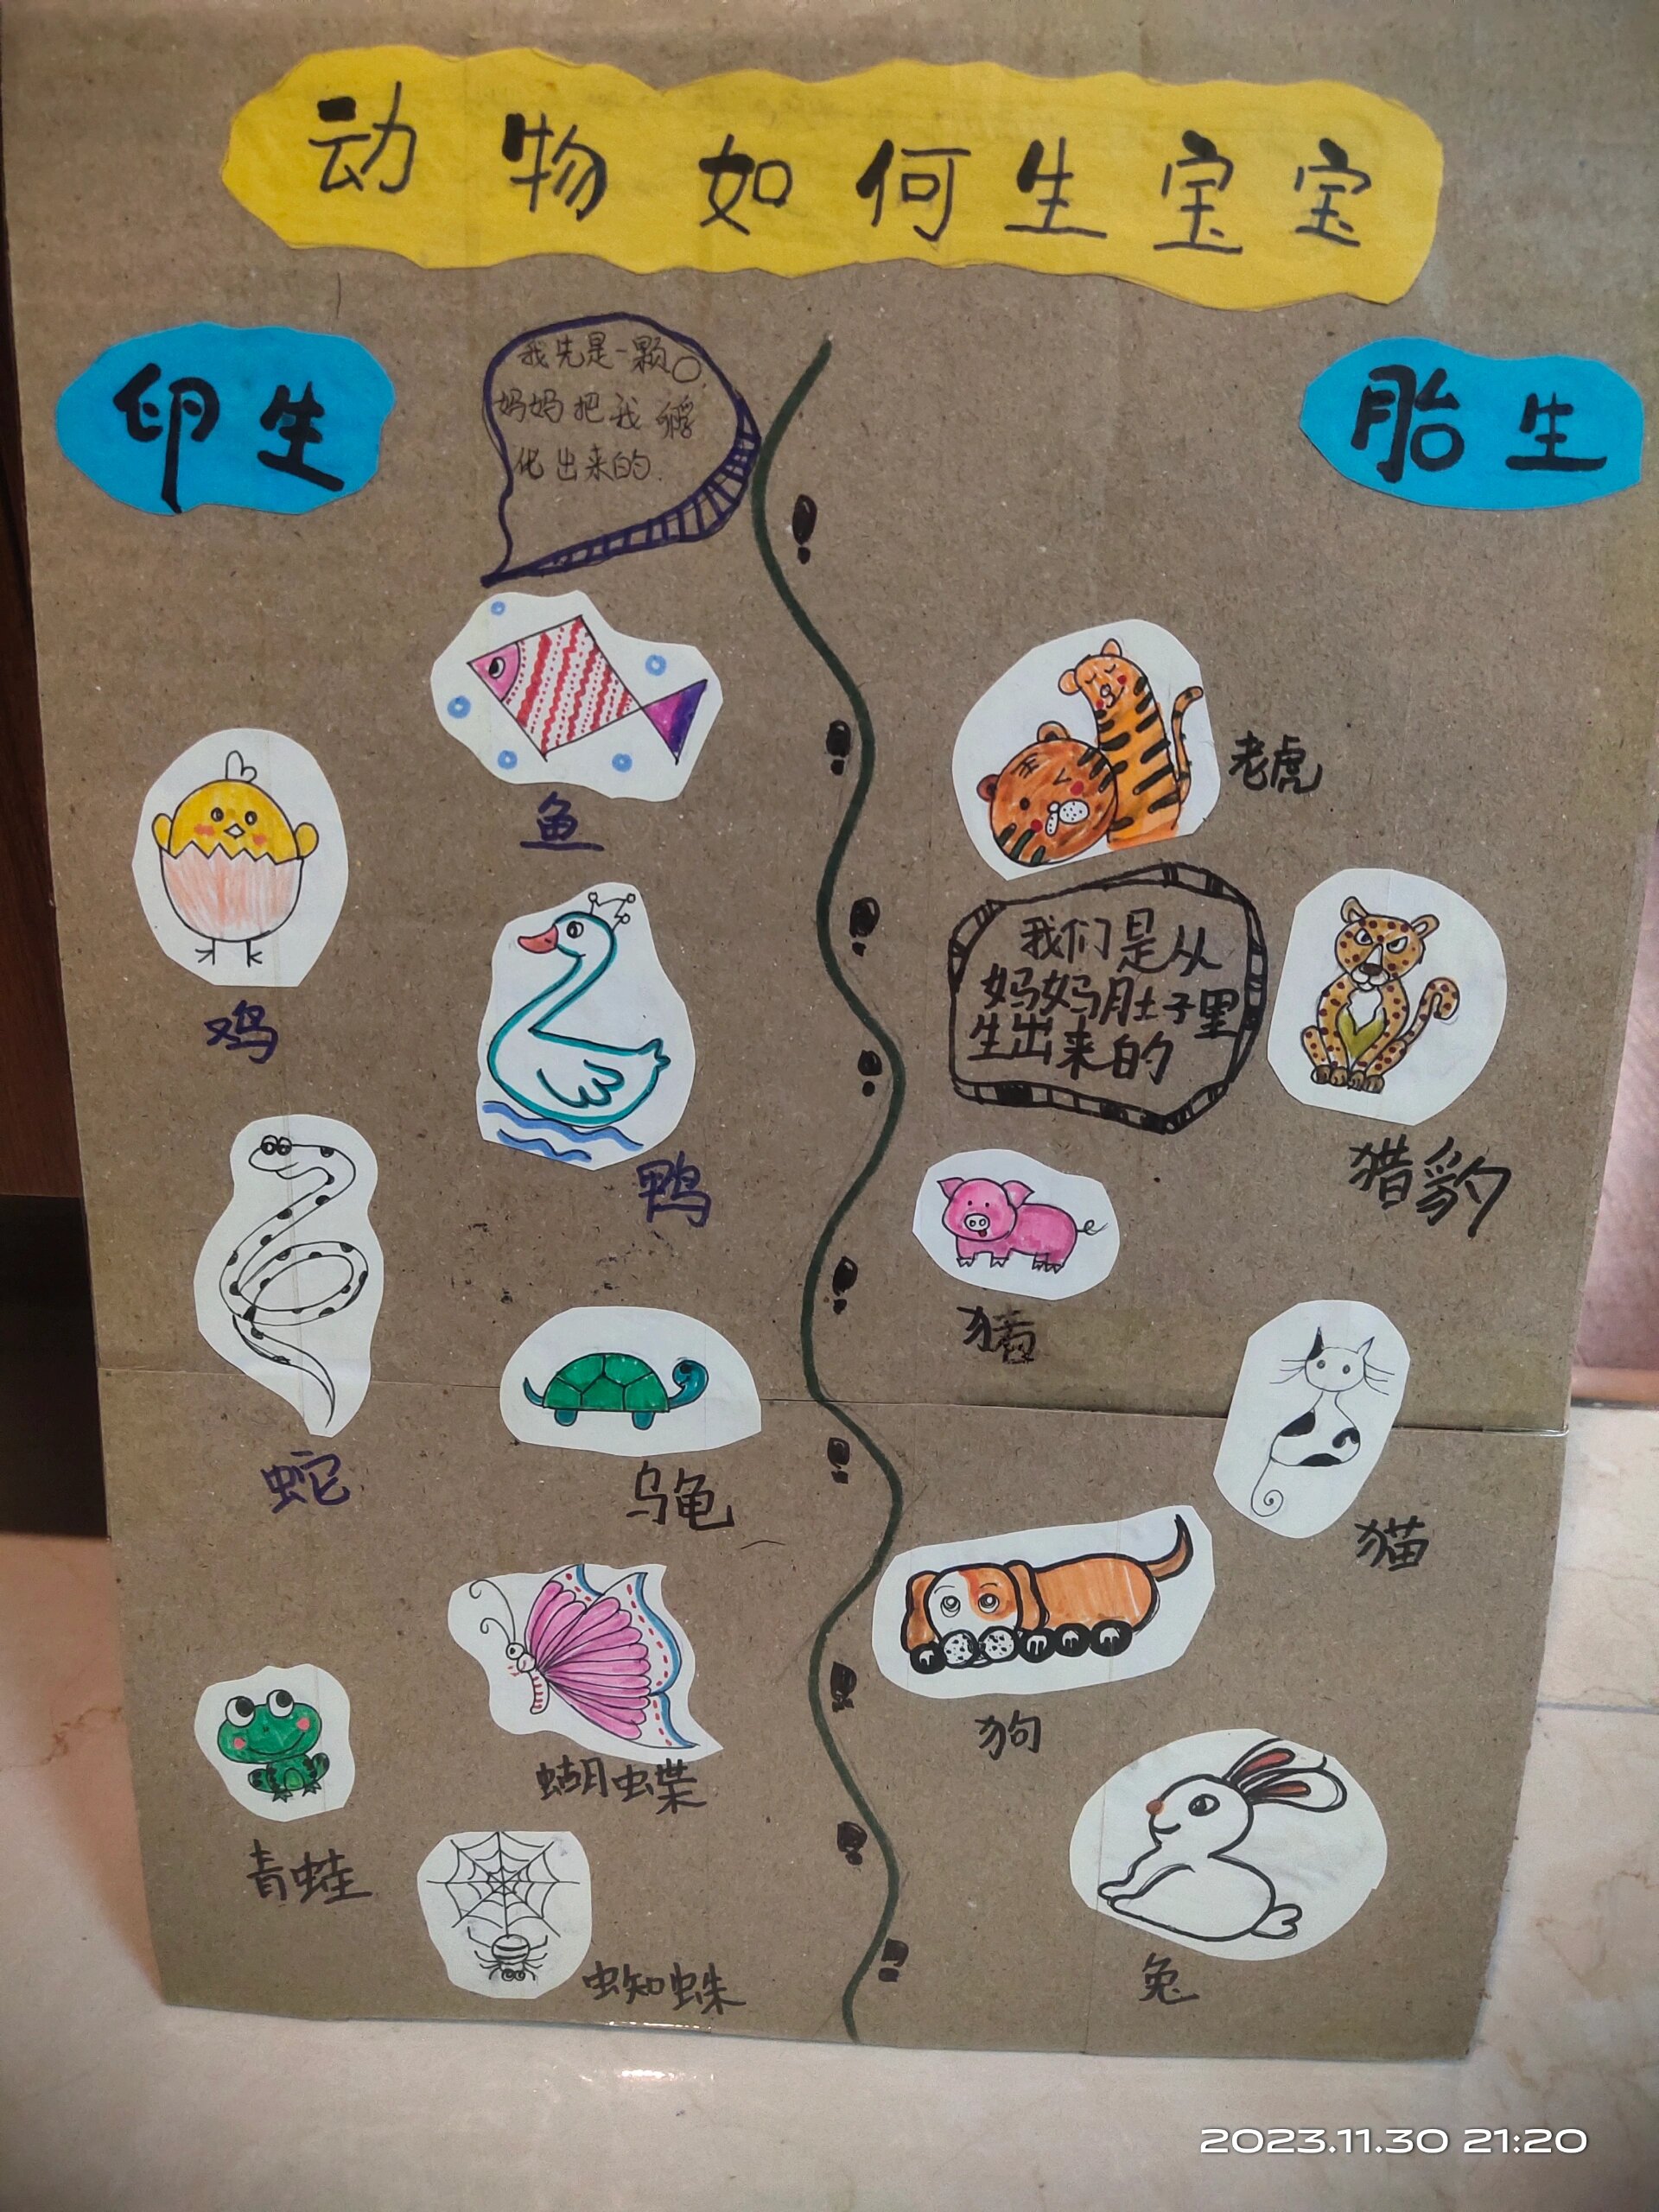 动物如何生宝宝
卵生
我先是一颗○,
妈妈把我孵
化出来的.
胎生
鱼
鸡
鸭
蛇
乌龟
蝴蝶
青蛙
蜘蛛
老虎
我们是从
妈妈肚子里
生出来的
猎豹
猪
猫
狗
兔
2023.11.30 21:20